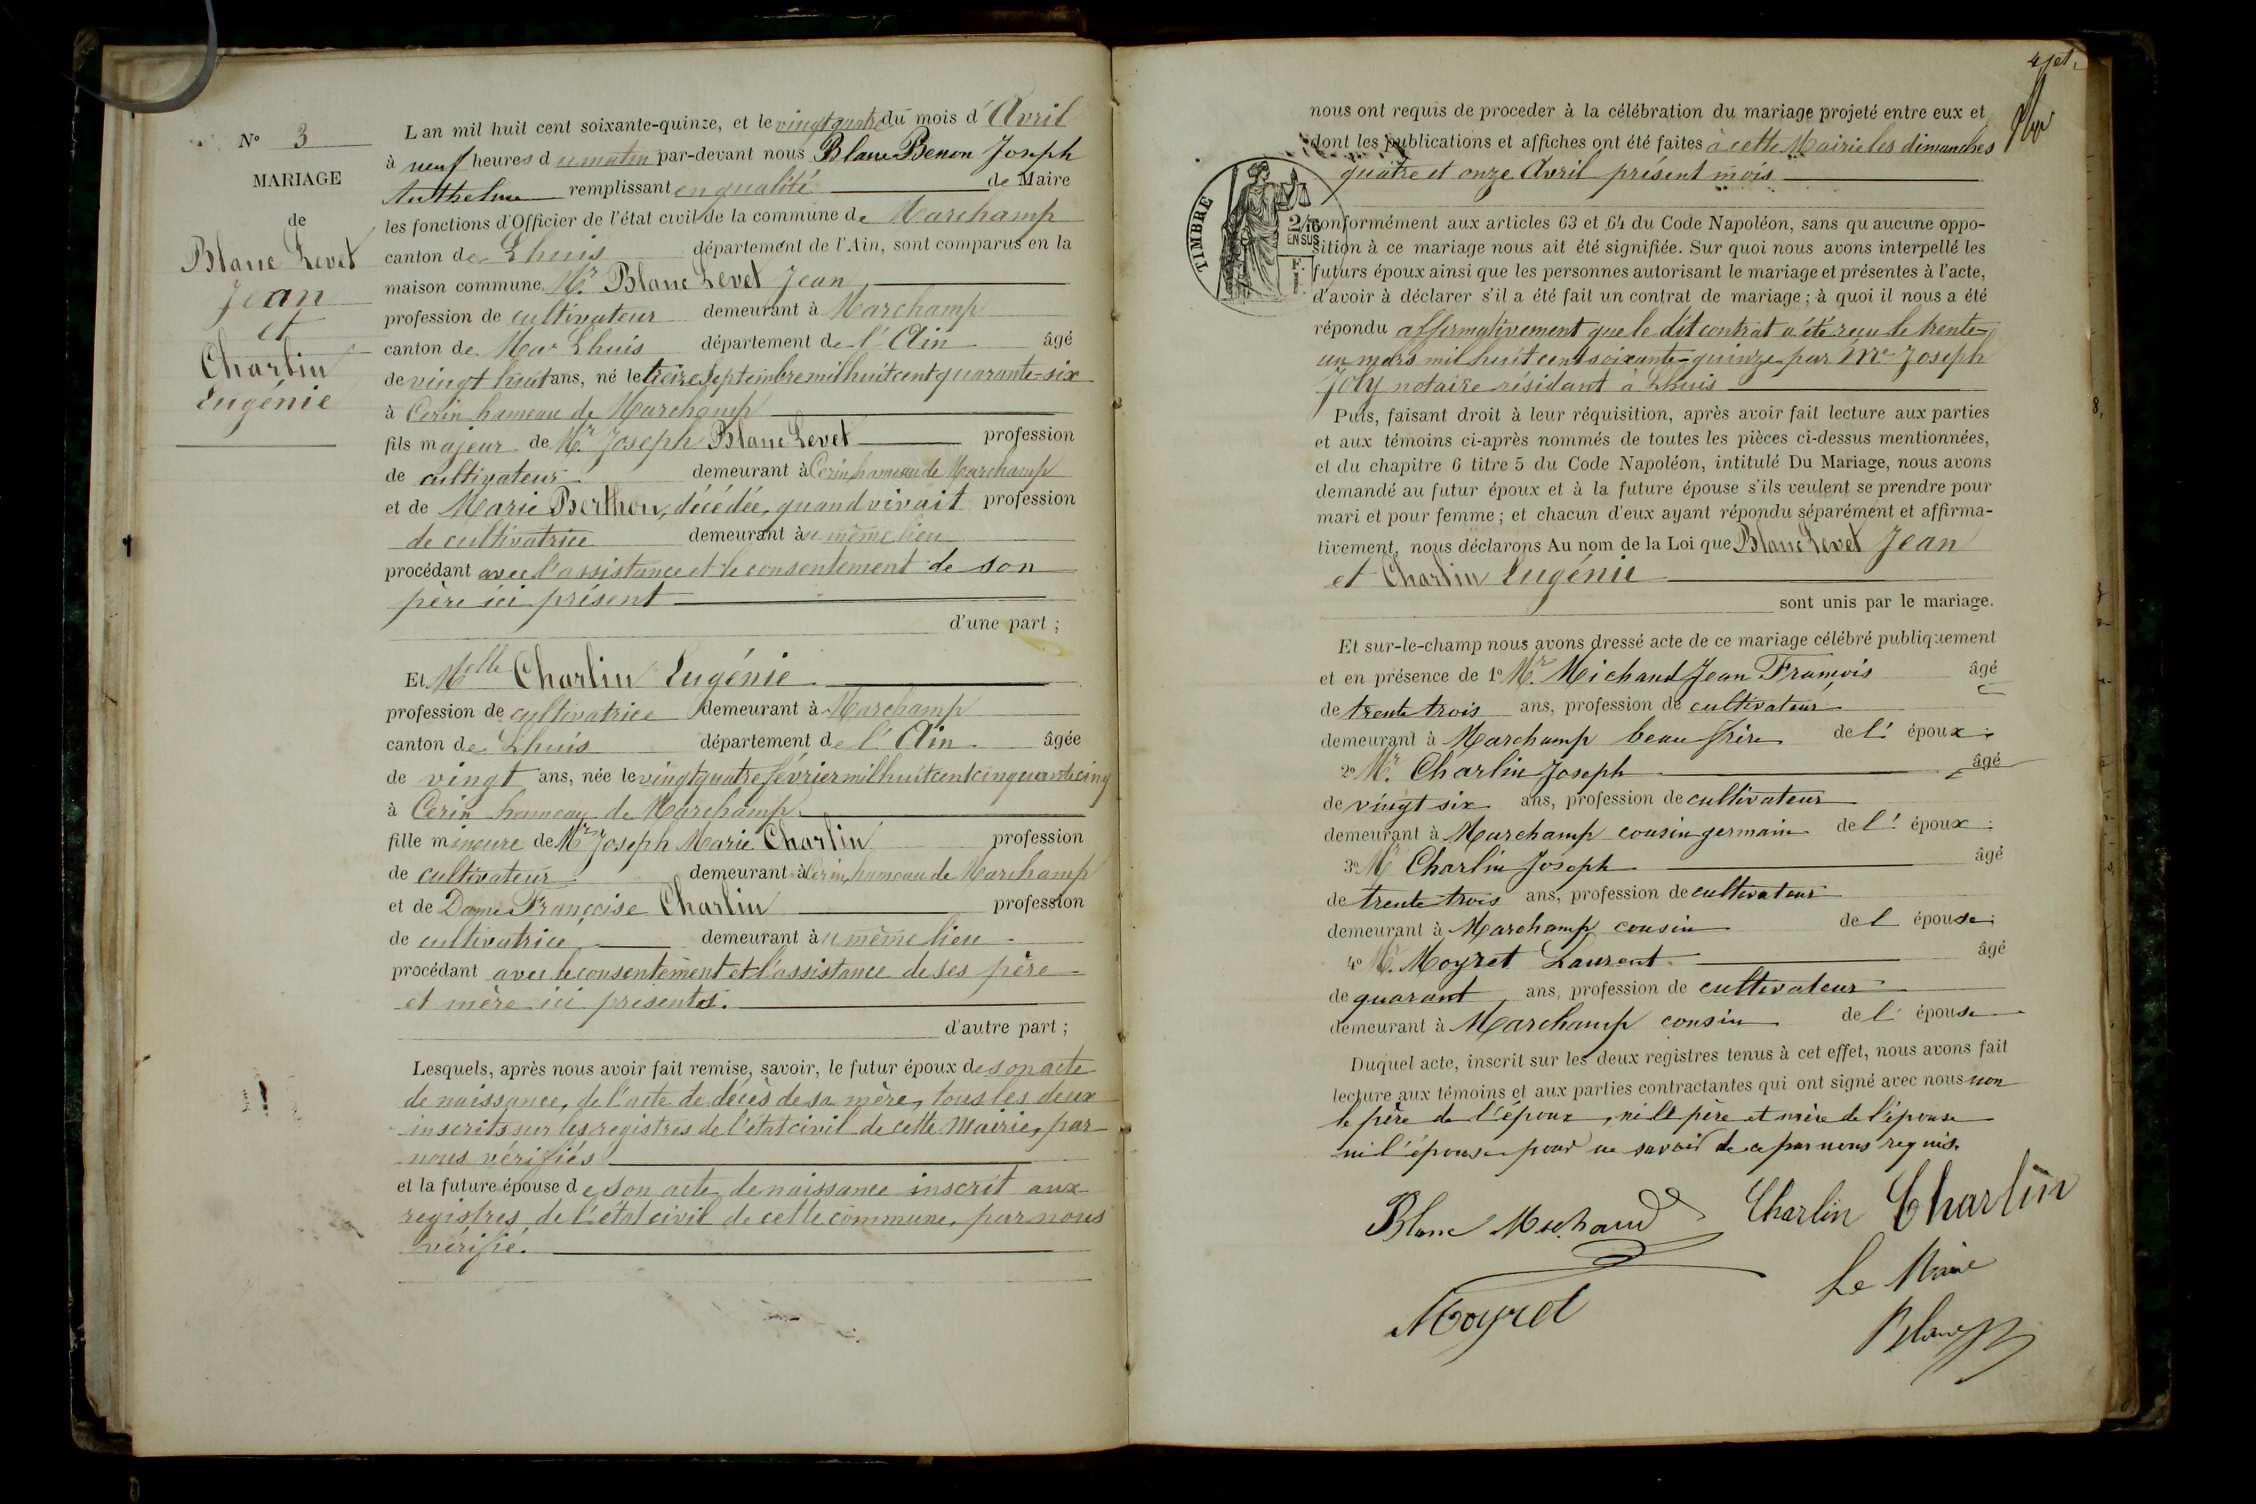 N° 3
MARIAGE
de
Blanc Levet
Jean
et
Charlin
Eugénie
L an mil huit cent soixante-quinze, et le vingt quatre du mois d'Avril
à neuf heures du matin par-devant nous Blanc Benon Joseph
Anthelme remplissant en qualité de Maire
les fonctions d'Officier de l'état civil de la commune de Marchamp
canton de Lhuis département de l'Ain, sont comparus en la
maison commune Mr Blanc Levet Jean
profession de cultivateur demeurant à Marchamp
canton de Mar Lhuis département de l'Ain âgé
de vingt huit ans, né le treize Septembre mil huit cent quarante-six
à Cerin hameau de Marchamp
fils majeur de Mr Joseph Blanc Levet profession
de cultivateur demeurant à Cerin hameau de Marchamp
et de Marie Berthon, décédée, quand vivait profession
de cultivatrice demeurant au même lieu
procédant avec l'assistance et le consentement de son
père ici présent
d'une part ;
Et Melle Charlin Eugénie
profession de cultivatrice demeurant à Marchamp
canton de Lhuis département de l'Ain âgée
de vingt ans, née le vingt quatre février mil huit cent cinquante cinq
à Cerin hameau de Marchamp
fille mineure de Mr Joseph Marie Charlin profession
de cultivateur demeurant à Cerin, hameau de Marchamp
et de Dame Françoise Charlin profession
de cultivatrice demeurant au même lieu
procédant avec le consentement et l'assistance de ses père
et mère ici présents.
d'autre part ;
Lesquels, après nous avoir fait remise, savoir, le futur époux de son acte
de naissance, de l'acte de décès de sa mère, tous les deux
inscrits sur les registres de l'état civil de cette Mairie, par
nous vérifiés
et la future épouse de son acte de naissance inscrit aux
registres de l'état civil de cette commune, par nous
vérifié.
nous ont requis de proceder à la célébration du mariage projeté entre eux et
dont les publications et affiches ont été faites à cette Mairie les dimanches
quatre et onze Avril présent mois
TIMBRE
2/10
EN SUS
conformément aux articles 63 et 64 du Code Napoléon, sans qu aucune oppo-
sition à ce mariage nous ait été signifiée. Sur quoi nous avons interpellé les
futurs époux ainsi que les personnes autorisant le mariage et présentes à l'acte,
d'avoir à déclarer s'il a été fait un contrat de mariage ; à quoi il nous a été
répondu affirmativement que le dit contrat a été reçu le trente-
un mars mil huit cent soixante-quinze par Me Joseph
Joly notaire résidant à Lhuis
Puis, faisant droit à leur réquisition, après avoir fait lecture aux parties
et aux témoins ci-après nommés de toutes les pièces ci-dessus mentionnées,
et du chapitre 6 titre 5 du Code Napoléon, intitulé Du Mariage, nous avons
demandé au futur époux et à la future épouse s'ils veulent se prendre pour
mari et pour femme ; et chacun d'eux ayant répondu séparément et affirma-
tivement, nous déclarons Au nom de la Loi que Blanc Levet Jean
et Charlin Eugénie
sont unis par le mariage.
Et sur-le-champ nous avons dressé acte de ce mariage célébré publiquement
et en présence de 1° Mr. Michaud Jean François âgé
de trente trois ans, profession de cultivateur
demeurant à Marchamp beau frère de l' époux ;
2° Mr. Charlin Joseph âgé
de vingt six ans, profession de cultivateur
demeurant à Marchamp cousin germain de l' époux ;
3° Mr Charlin Joseph âgé
de trente trois ans, profession de cultivateur
demeurant à Marchamp cousin de l épouse ;
4° Mr. Moyret Laurent âgé
de quarant ans, profession de cultivateur
demeurant à Marchamp cousin de l' épouse
Duquel acte, inscrit sur les deux registres tenus à cet effet, nous avons fait
lecture aux témoins et aux parties contractantes qui ont signé avec nous non
le père de l'époux, ni le père et mère de l'épouse
ni l'épouse pour ne savoir de ce par nous requis.
Blanc Michaud Charlin Charlin
Moyret
Le Maire
Blanc